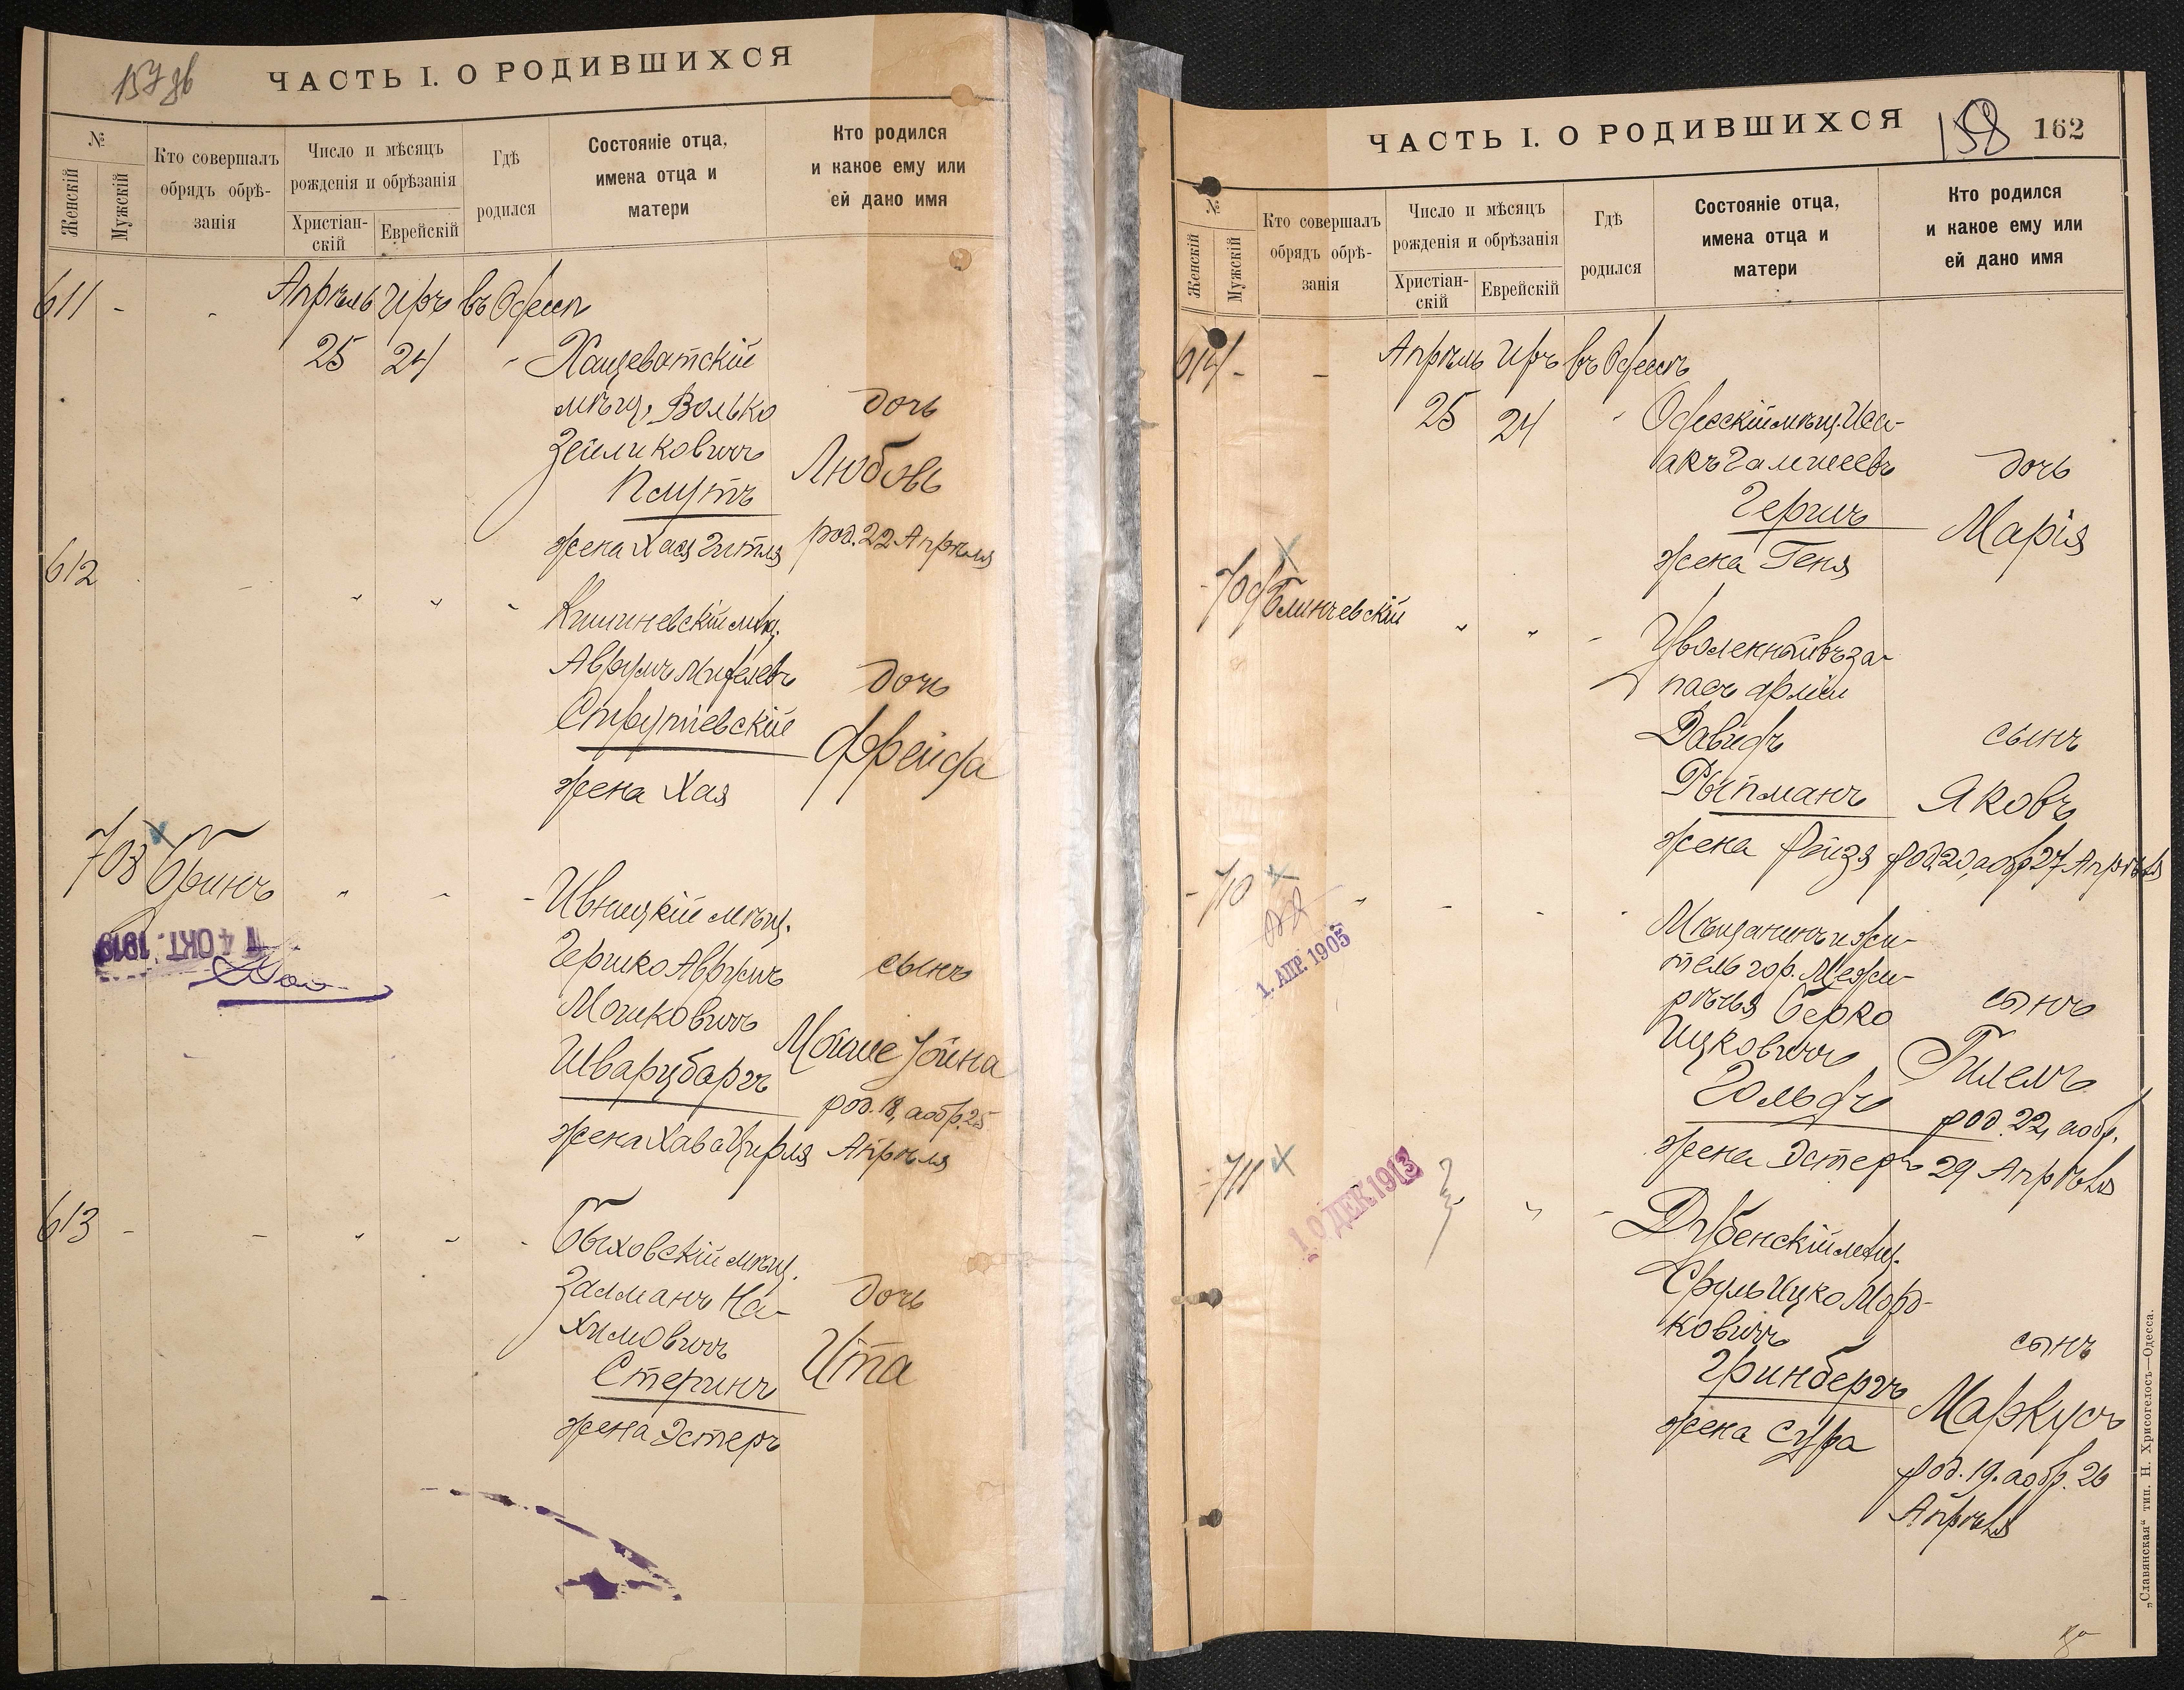 157 об
ЧАСТЬ I. О РОДИВШИХСЯ
№
Женскій
Мужскій
Кто совершалъ
обрядъ обрѣ-
занія
Число и мѣсяцъ
рожденія и обрѣзанія
Христіан-
скій
Еврейскій
Гдѣ
родился
Состояніе отца,
имена отца и
матери
Кто родился
и какое ему или
ей дано имя
611 - - Апрѣль Иръ въ Одессѣ
25 24 Хащеватскій
мѣщ. Волько
Зейликовичъ
дочь
Любовь
жена Хая Гитля
род. 22 Апрѣля
612
Кишиневскій мѣщ.
Аврумъ
дочь
Фрейда
жена Хая
708 Бринъ
14 ОКТ. 1919
Ивницкій мѣщ.
Гершко Аврумъ
Мошковичъ
Шварцбаргъ
жена Хава Цирля
сынъ
Мойше Іойна
род. 18, а обр. 25
Апрѣля
613
Быховскій мѣщ.
Залманъ На-
химовичъ
Стеринъ
жена Эстеръ
дочь
Ита
ЧАСТЬ I. О РОДИВШИХСЯ
158
162
№
Женскій
Мужскій
Кто совершалъ
обрядъ обрѣ-
занія
Число и мѣсяцъ
рожденія и обрѣзанія
Христіан-
скій
Еврейскій
Гдѣ
родился
Состояніе отца,
имена отца и
матери
Кто родился
и какое ему или
ей дано имя
614 - - Апрѣль Иръ въ Одессѣ
25 24 Одесскій мѣщ. Иса-
акъ
Гершъ
жена Геня
дочь
Марія
709 Блинчевскій
Уволенный въ за-
пасъ арміи
Давидъ
Рыпманъ
жена Рейзя
сынъ
Яковъ
род. 20, а обр. 27 Апрѣля
710
1. АПР. 1905
Мѣщанинъ и жи-
тель гор. Межи-
рѣчья Берко
Ицковичъ
Гольдъ
жена Эстеръ
сынъ
Гилелъ
род. 22, а обр.
29 Апрѣля
711
10 ДЕК 1913
Дубенскій мѣщ.
Сруль Ицко Морд-
ковичъ
Гринбергъ
жена Сура
сынъ
Маркусъ
род. 19. а обр. 26
Апрѣля
„Славянская“ тип. Н. Хрисогелосъ—Одесса.